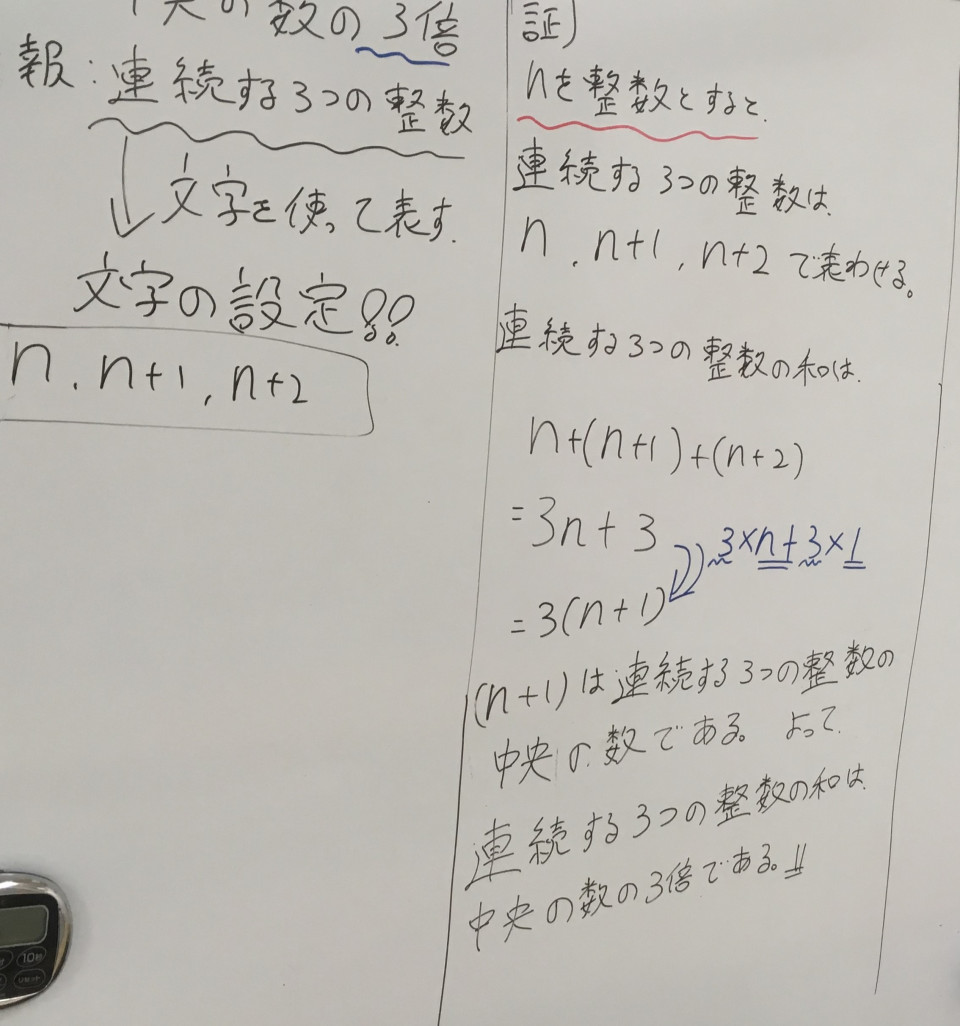 中央の数の3倍
報:連続する3つの整数
文字を使って表す.
文字の設定!!
n, n+1, n+2
証)
nを整数とすると,
連続する3つの整数は,
n, n+1, n+2で表わせる。
連続する3つの整数の和は,
n+(n+1)+(n+2)
=3n+3
3×n+3×1
=3(n+1)
(n+1)は連続する3つの整数の
中央の数である。よって,
連続する3つの整数の和は,
中央の数の3倍である。
10秒
リセット